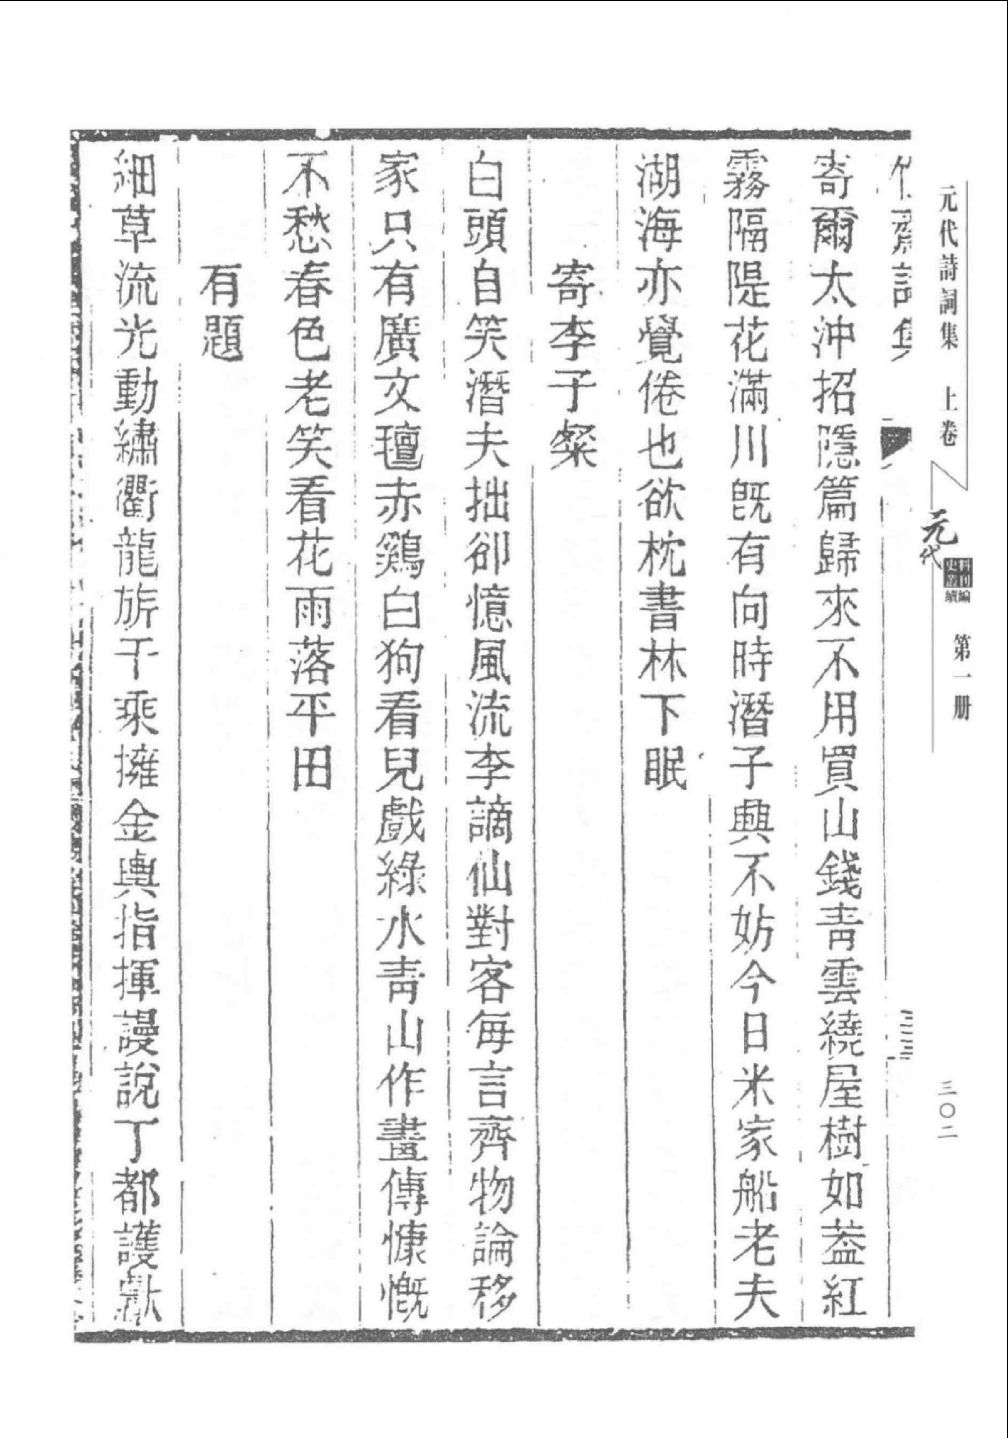 元代詩詞集 上卷
元代
史料叢刊續編
第一册
三〇二
竹齋詩集
三
寄爾太沖招隱篇歸來不用買山錢青雲繞屋樹如葢紅
霧隔隄花滿川旣有向時潛子興不妨今日米家船老夫
湖海亦覺倦也欲枕書林下眠
寄李子粲
白頭自笑潛夫拙卻憶風流李謫仙對客每言齊物論移
家只有廣文氊赤鷄白狗看兒戲綠水青山作畫傳慷慨
不愁春色老笑看花雨落平田
有題
細草流光動繡衢龍旂千乘擁金輿指揮謾說丁都護獻